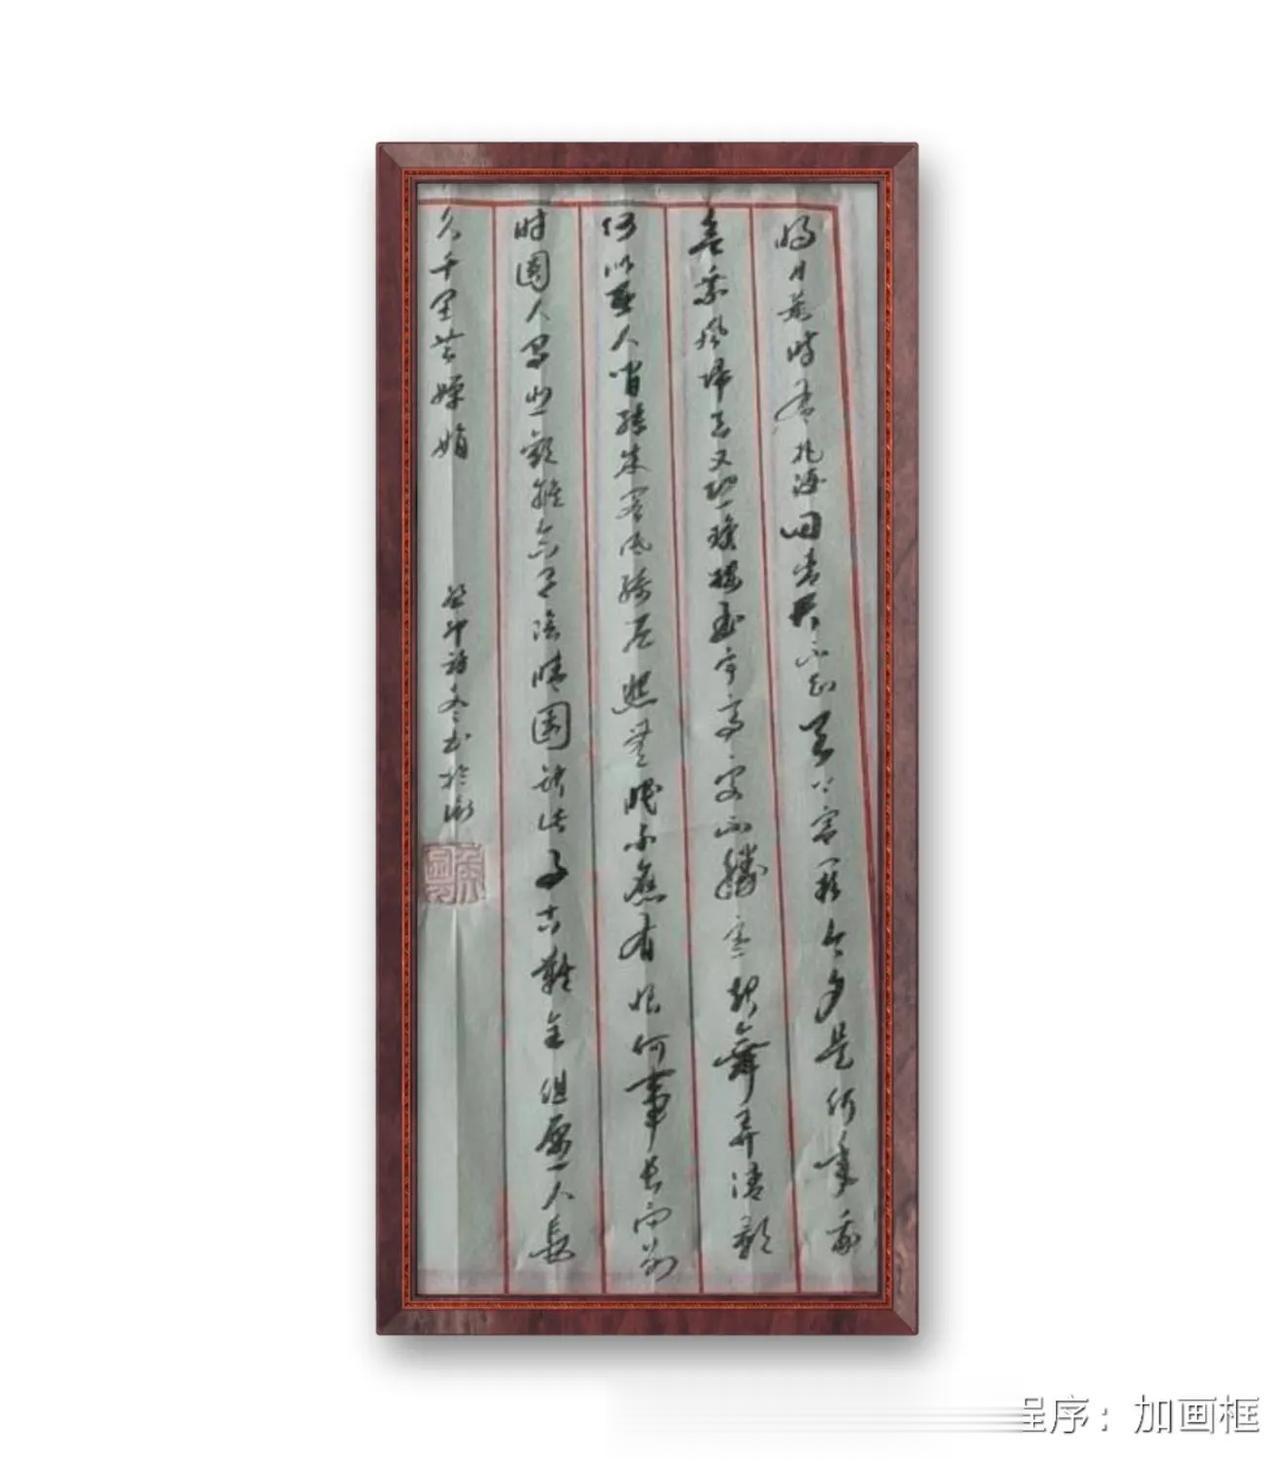 明月幾时有把酒问青天不知天上宫阙今夕是何年我
欲乘風歸去又恐瓊楼玉宇高寒不勝寒起舞弄清影
何似在人间转朱阁低绮户照無眠不應有恨何事长向别
时圆人有悲歡離合月陰晴圆缺此事古難全但愿人長
久千里共婵娟
癸卯初冬书於
程序：加画框